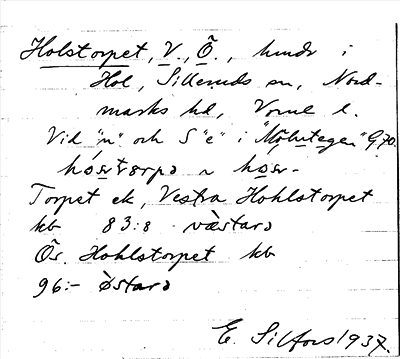 Holstorpet, V., Ö., hmdr i
Hol, Silleruds sn, Nord-
marks hd, Vrml l.
Vid "n" och S "e" i "Mölntegen" G.70.
Torpet ek, Vestra Hohlstorpet
kb 83:8 västarə
Ös. Hohlstorpet kb
96:- östarə
E. Silfors 1937.